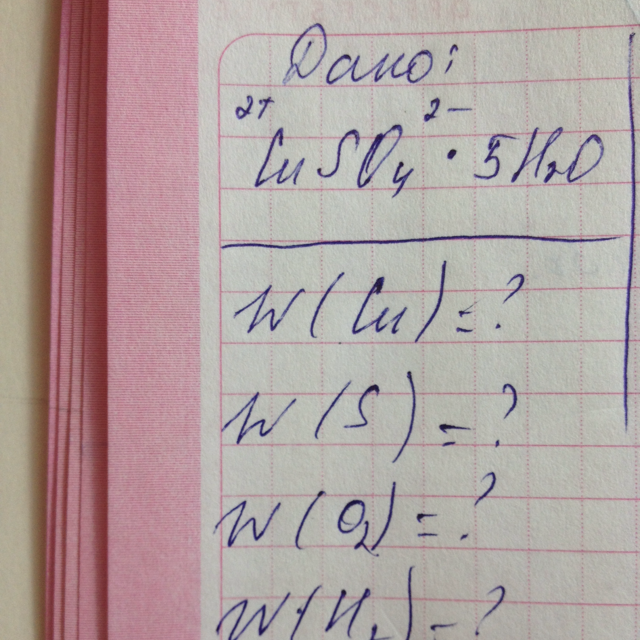 Дано:
2+ 2-
CuSO4 · 5H2O
W(Cu)=?
W(S)=?
W(O2)=?
W(H2)=?